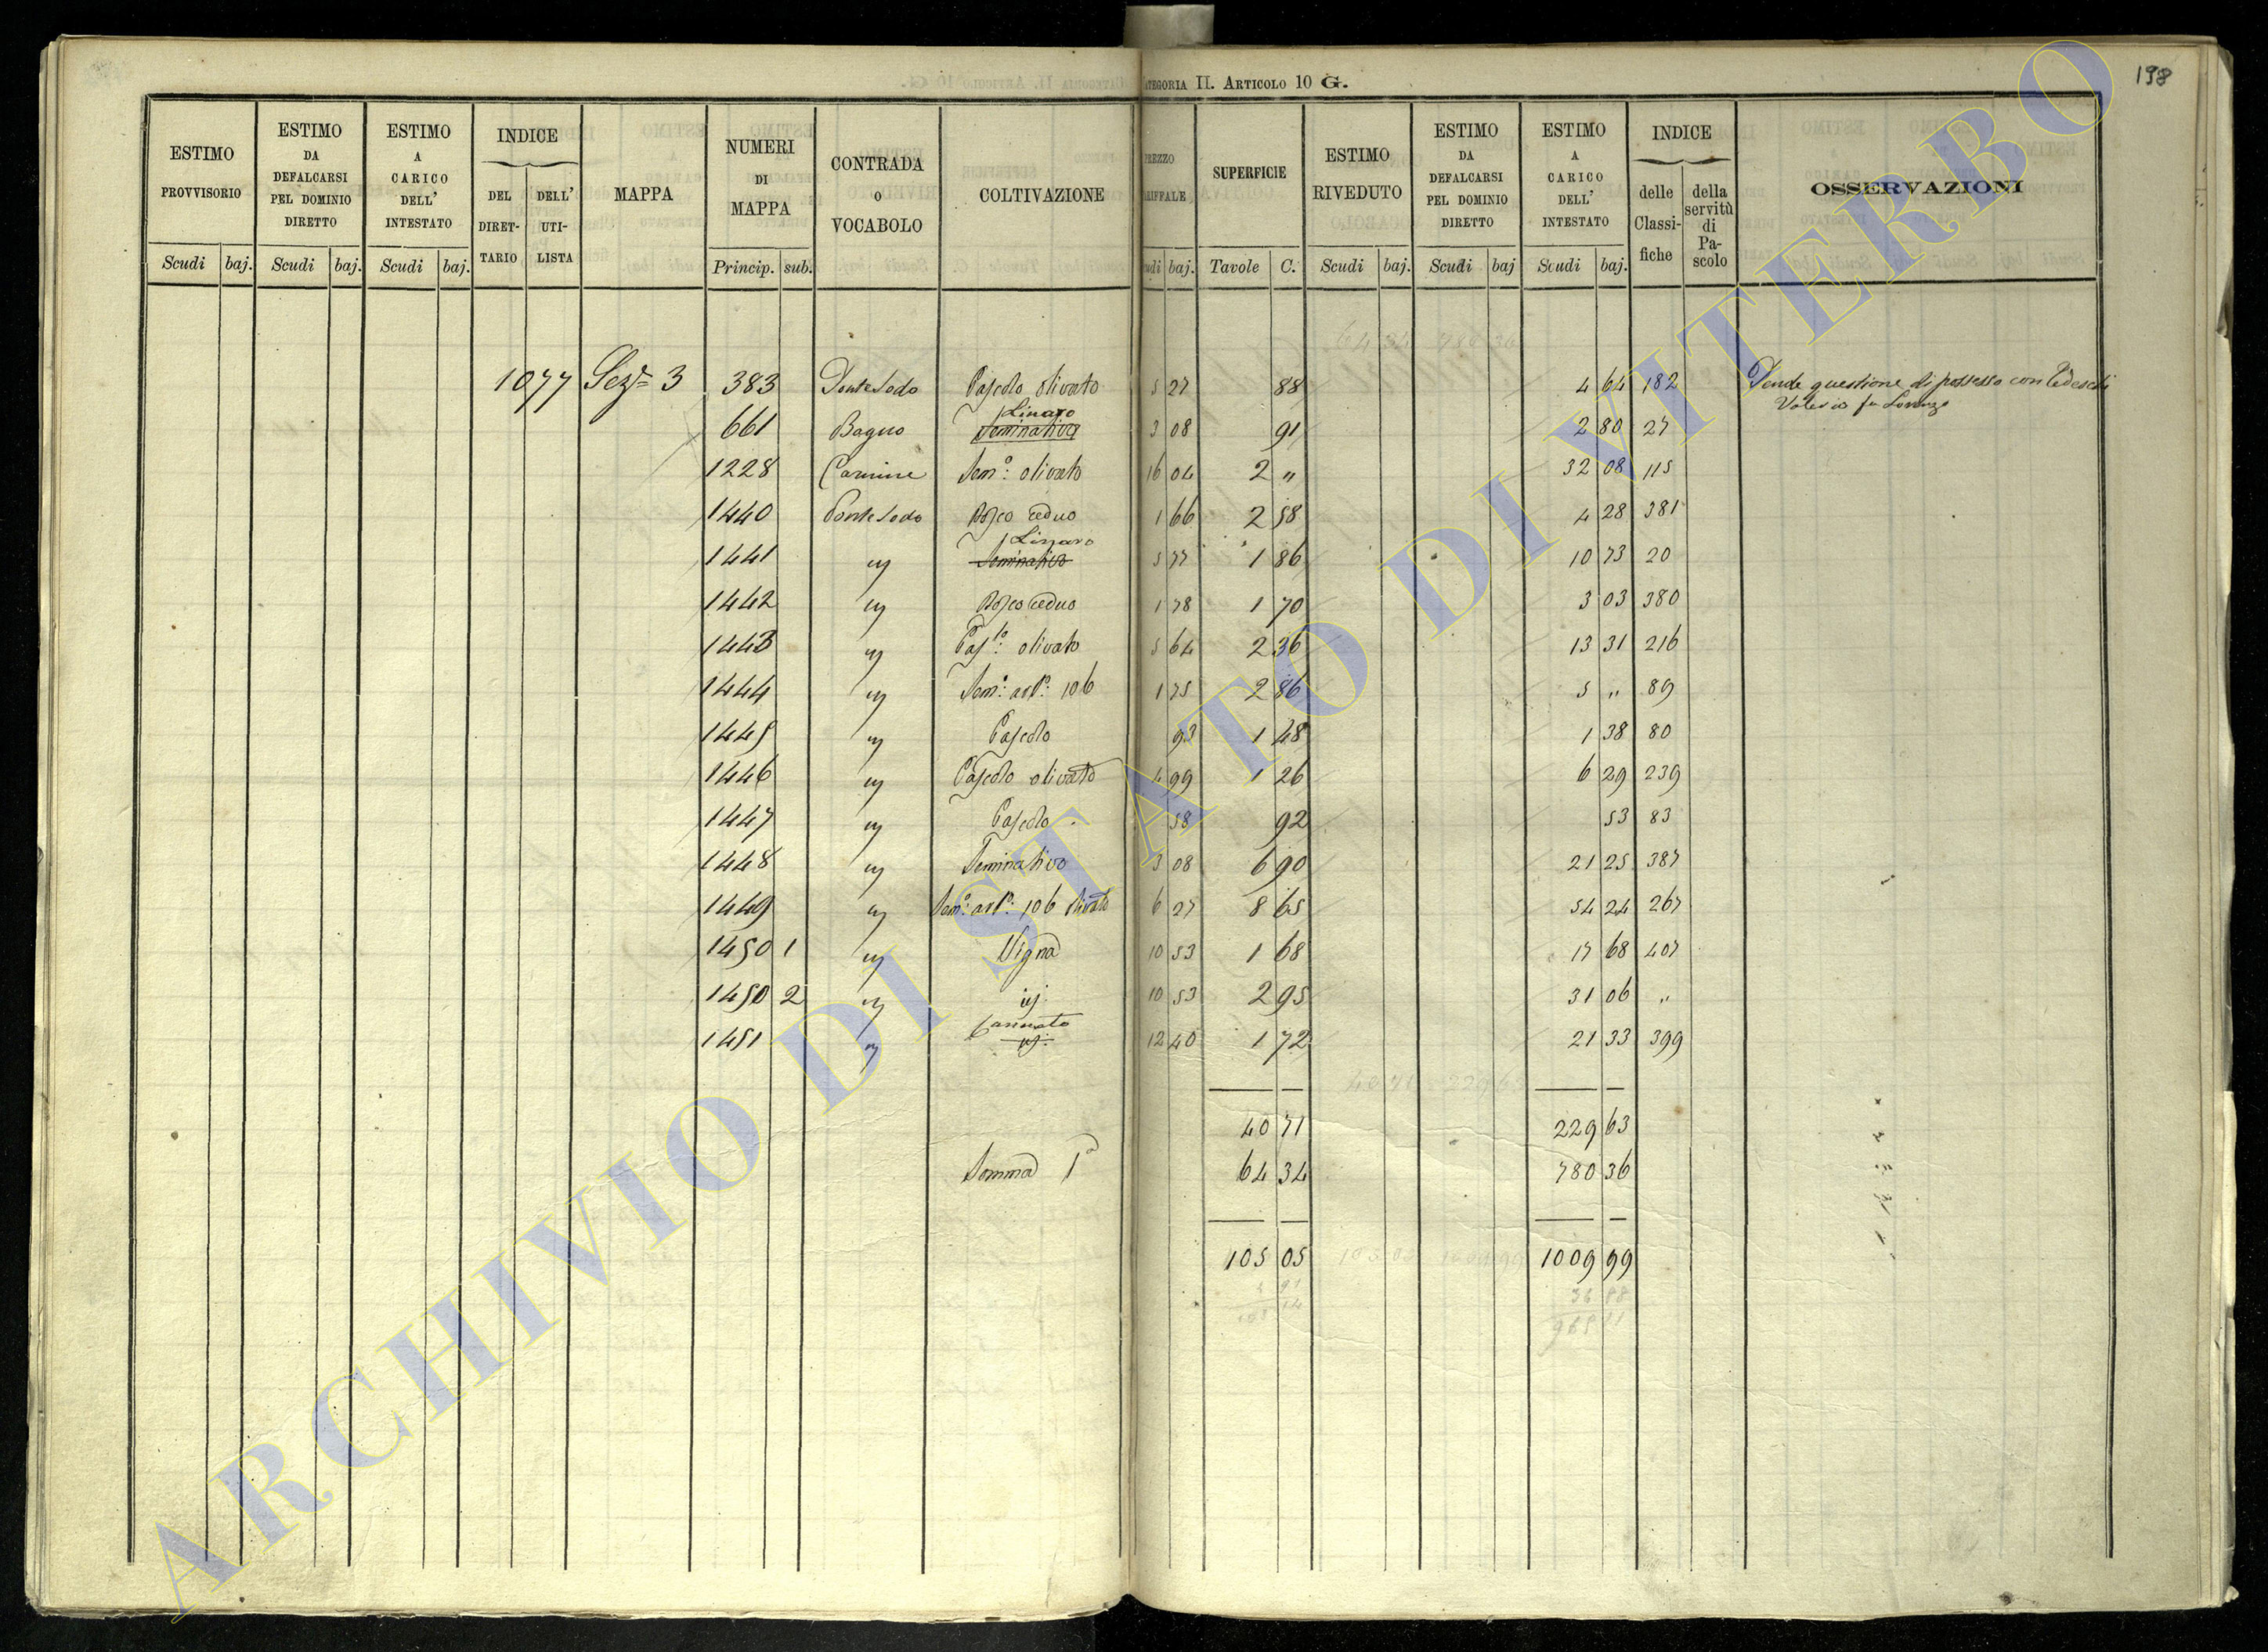 198
CATEGORIA II. ARTICOLO 10 G.
ESTIMO PROVVISORIO
ESTIMO DA DEFALCARSI PEL DOMINIO DIRETTO
ESTIMO A CARICO DELL' INTESTATO
INDICE
DEL DIRET-TARIO
DELL' UTI-LISTA
MAPPA
NUMERI DI MAPPA
CONTRADA O VOCABOLO
COLTIVAZIONE
PREZZO
SUPERFICIE
ESTIMO RIVEDUTO
ESTIMO DA DEFALCARSI PEL DOMINIO DIRETTO
ESTIMO A CARICO DELL' INTESTATO
INDICE
delle Classi-fiche
della servitù di Pa-scolo
OSSERVAZIONI
Scudi baj. Scudi baj. Scudi baj. Princip. sub. baj. Tavole C. Scudi baj. Scudi baj Scudi baj.
1077 Sezne 3 383 Pontesodo Pascolo olivato 5 27 88 4 64 182 Pende questione di possesso con Tedeschi
Valerio fu Lorenzo
Linaro
661 Bagno Seminativo 3 08 91 2 80 27
1228 Carmine Semo: olivato 16 04 2 „ 32 08 115
1440 Pontesodo Bosco ceduo 1 66 2 58 4 28 381
Linaro
1441 Seminativo 5 77 1 86 10 73 20
1442 Bosco ceduo 1 78 1 70 3 03 380
1443 Paslo: olivato 5 64 2 36 13 31 216
1444 Semo: 106 1 75 2 86 5 „ 89
1445 Pascolo 93 1 48 1 38 80
1446 Pascolo olivato 4 99 1 26 6 29 239
1447 Pascolo 58 92 53 83
1448 Seminativo 3 08 6 90 21 25 387
1449 Semo: 106 olivato 6 27 8 65 54 24 267
1450 1 Vigna 10 53 1 68 17 68 407
1450 2 10 53 2 95 31 06 „
Cannato
1451 12 40 1 72 21 33 399
40 71 229 63
Somma 1a 64 34 780 36
105 05 1009 99
ARCHIVIO DI STATO DI VITERBO